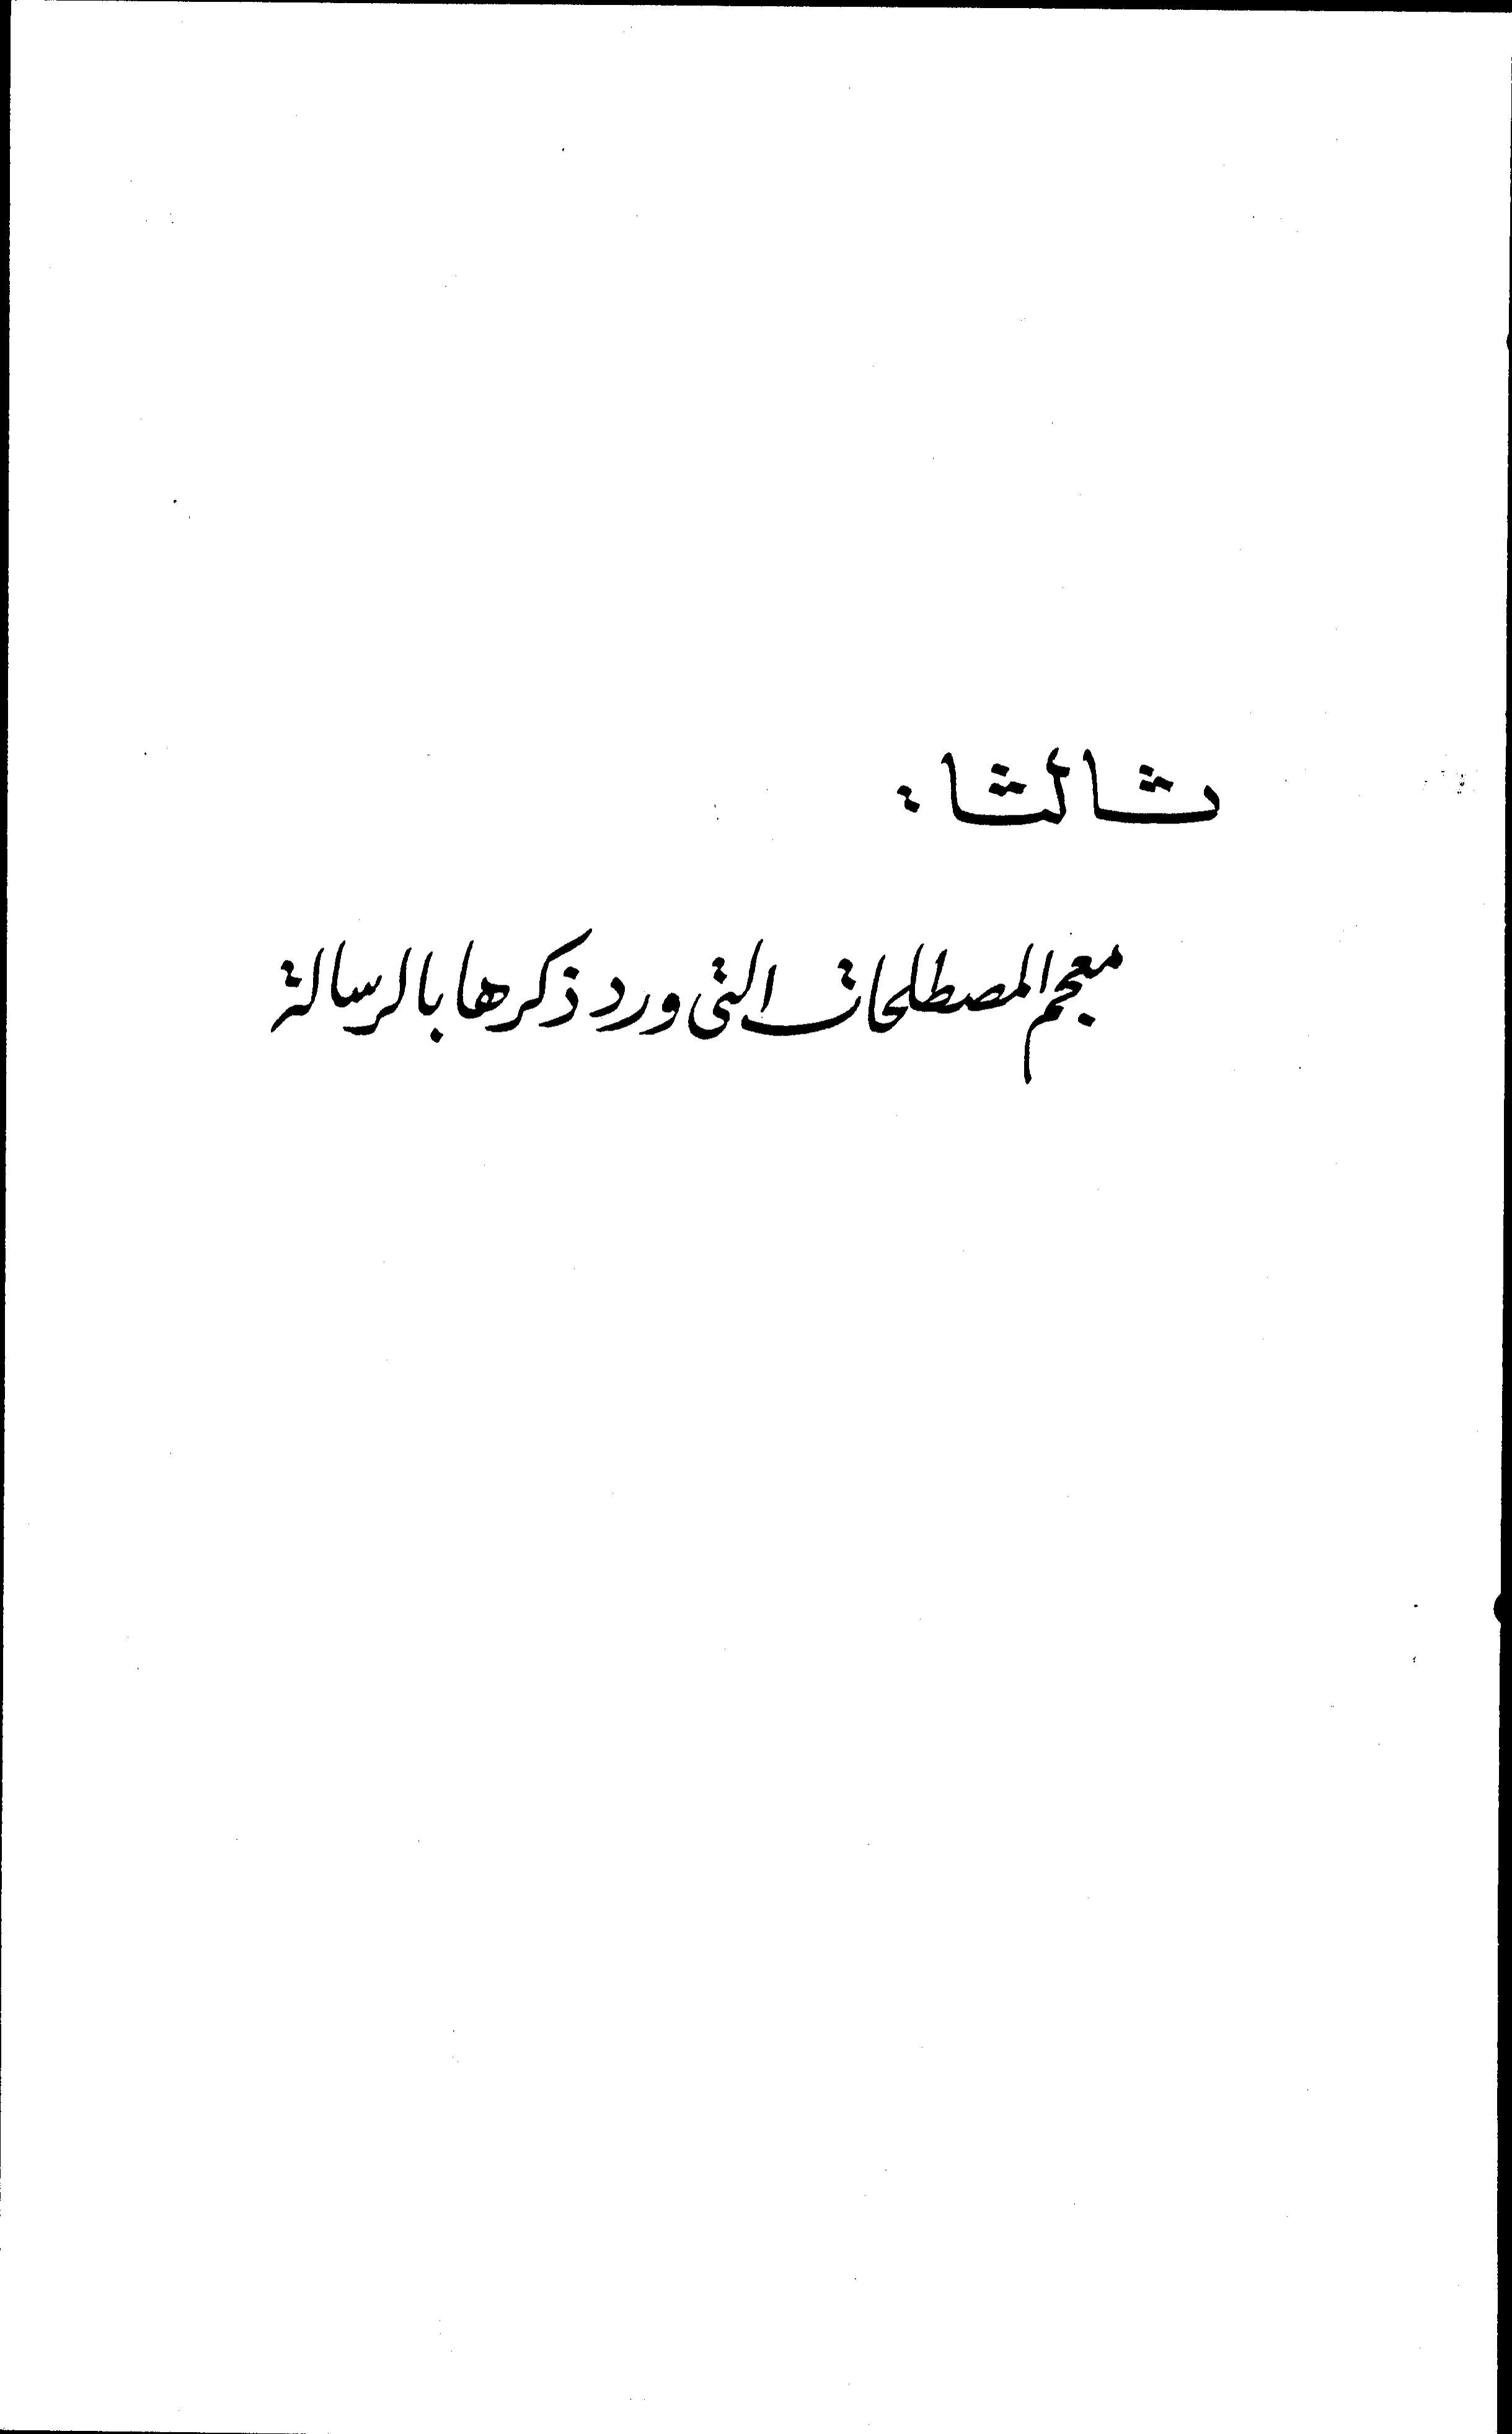 ثالثا :
معجم المصطلحات التى ورد ذكرها بالرسالة